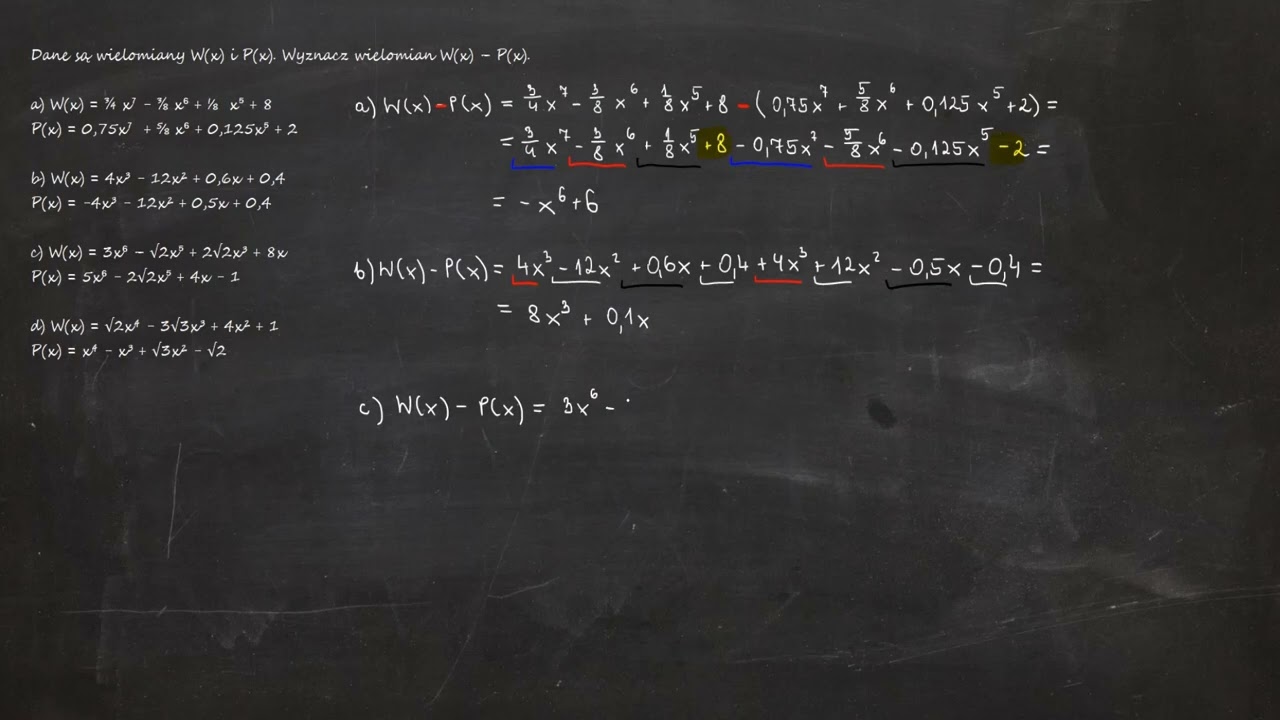 Dane są wielomiany W(x) i P(x). Wyznacz wielomian W(x) – P(x).
a) W(x) = ¾ x⁷ – ⅜ x⁶ + ⅛ x⁵ + 8
P(x) = 0,75x⁷ + ⅝ x⁶ + 0,125x⁵ + 2
b) W(x) = 4x³ – 12x² + 0,6x + 0,4
P(x) = -4x³ – 12x² + 0,5x + 0,4
c) W(x) = 3x⁶ – √2x⁵ + 2√2x³ + 8x
P(x) = 5x⁶ – 2√2x⁵ + 4x – 1
d) W(x) = √2x⁴ – 3√3x³ + 4x² + 1
P(x) = x⁴ – x³ + √3x² – √2
a) W(x) - P(x) = 3/4 x⁷ - 3/8 x⁶ + 1/8 x⁵ + 8 - (0,75x⁷ + 5/8 x⁶ + 0,125x⁵ + 2) =
= 3/4 x⁷ - 3/8 x⁶ + 1/8 x⁵ + 8 - 0,75x⁷ - 5/8 x⁶ - 0,125x⁵ - 2 =
= - x⁶ + 6
b) W(x) - P(x) = 4x³ - 12x² + 0,6x + 0,4 + 4x³ + 12x² - 0,5x - 0,4 =
= 8x³ + 0,1x
c) W(x) - P(x) = 3x⁶ -